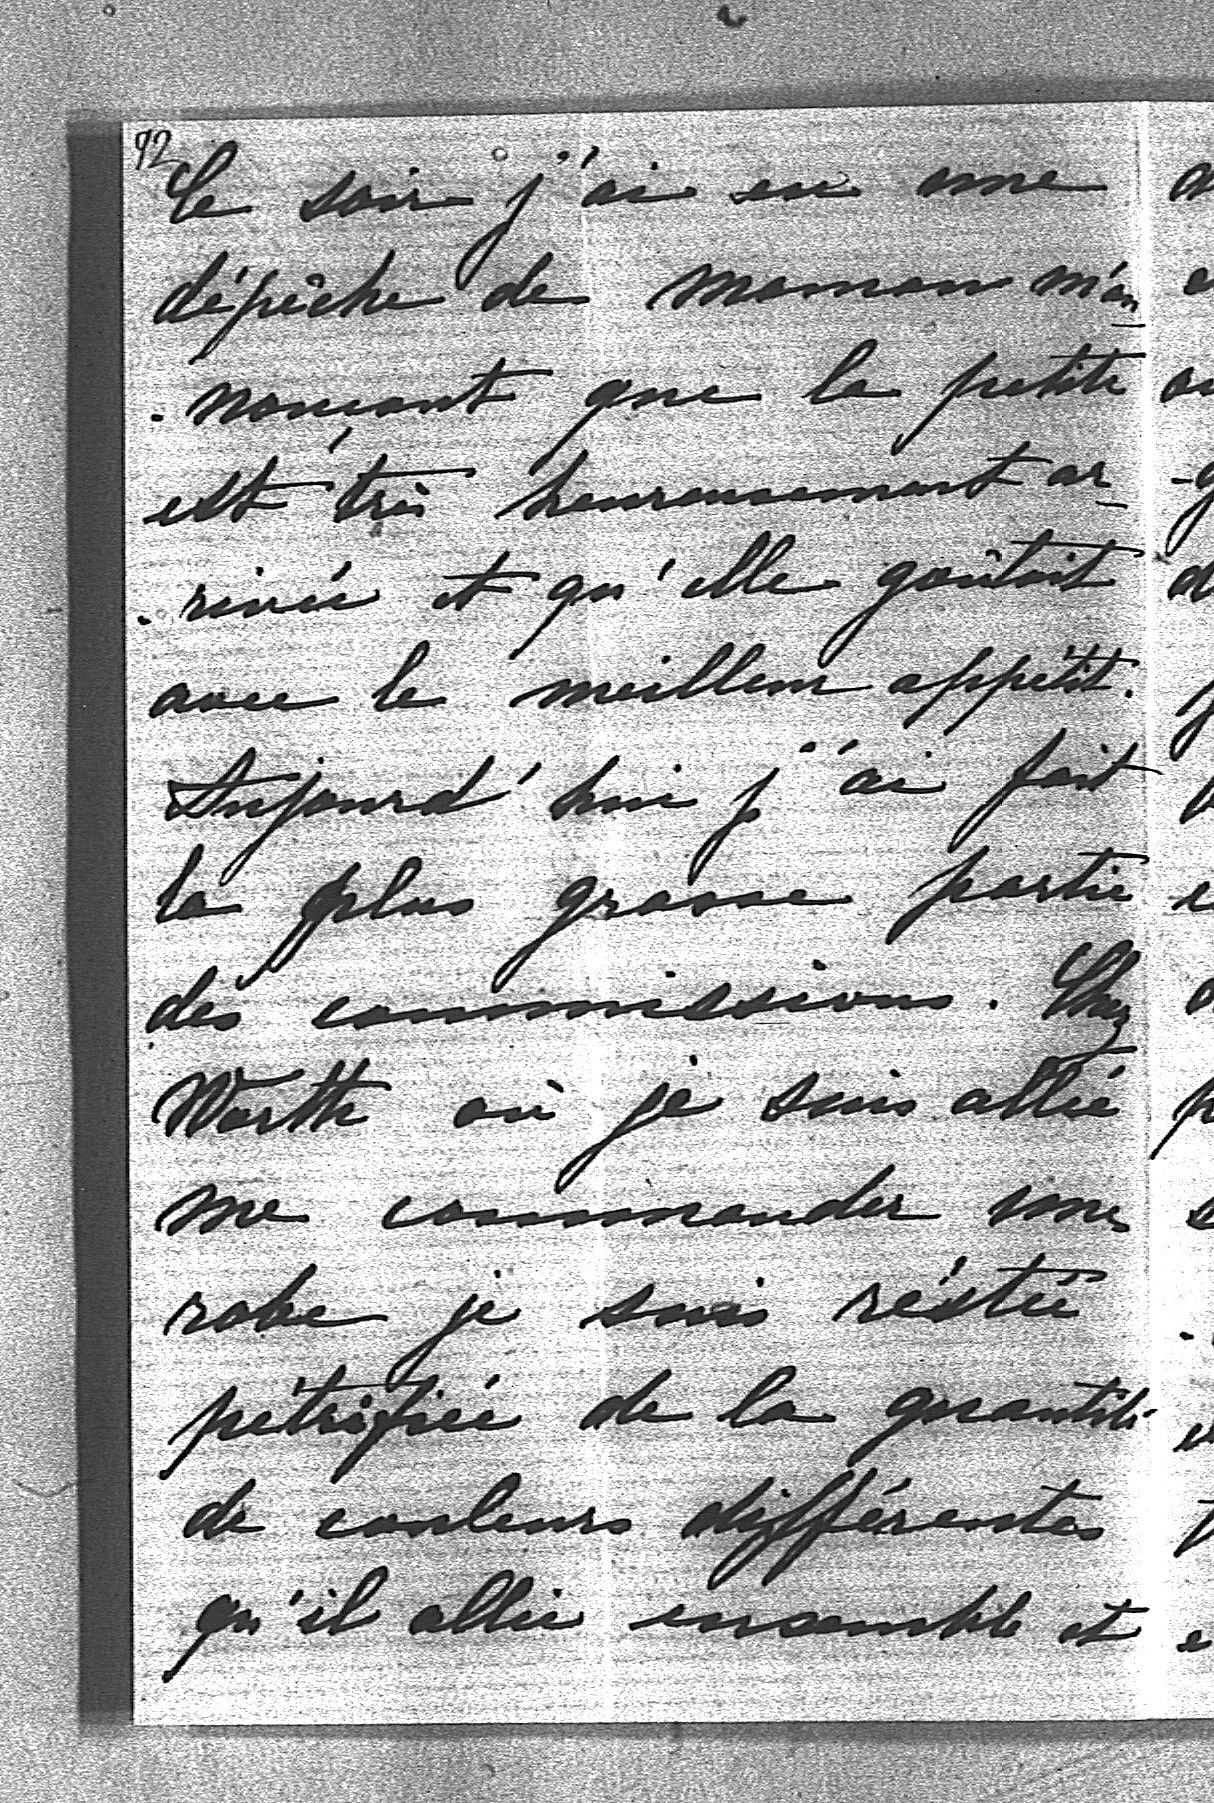 72
Ce soir j'ai eu une
dépêche de maman m'an
-nonçant que la petite
est très heureusement ar-
-rivée et qu'elle goûtait
avec le meilleur appétit.
Aujourd'hui j'ai fait
la plus grosse partie
des commissions. Chez
Worth où je suis allée
me commander une
robe je suis réstée
pétrifiée de la quantité
de couleurs différentes
qu'il allie ensemble et